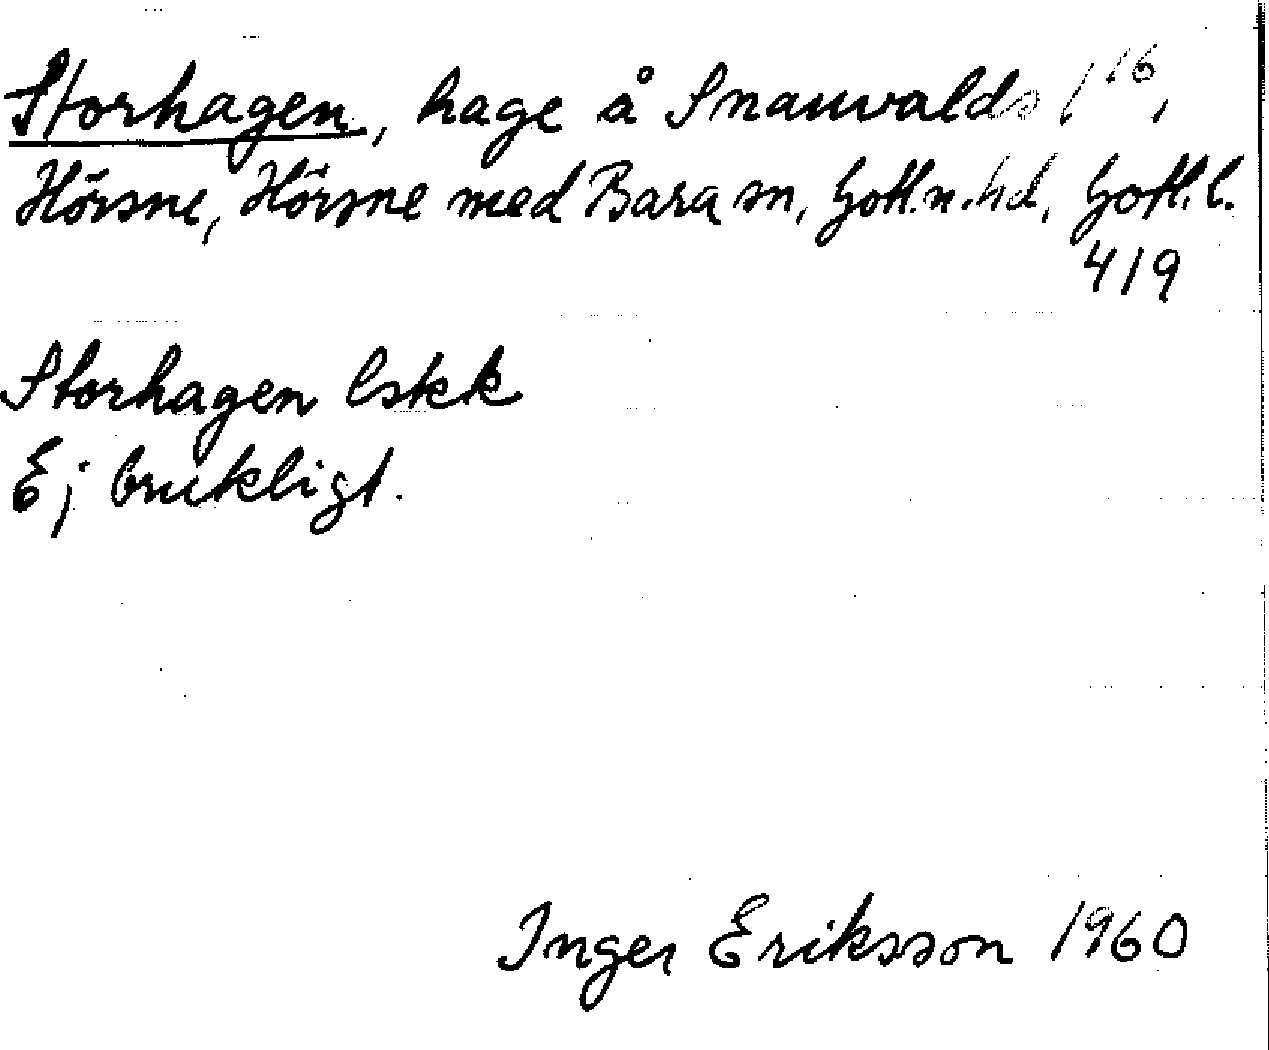 Storhagen, hage å Snauvalds 1¹⁶,
Hörsne, Hörsne med Bara sn, Gotl.n.hd, Gotl.l.
419
Storhagen Eskk
Ej brukligt.
Inger Eriksson 1960